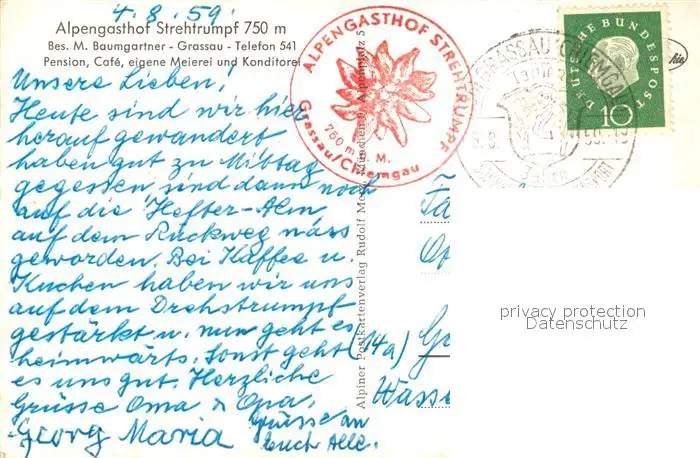 4.8.59.
Alpengasthof Strehtrumpf 750 m
Bes. M. Baumgartner - Grassau - Telefon 541
Pension, Café, eigene Meierei und Konditorei
Unsere Lieben!
Heute sind wir hier
herauf gewandert
haben gut zu Mittag
gegessen, sind dann noch
auf die Hefter-Alm,
auf dem Rückweg nass
geworden. Bei Kaffee u.
Kuchen haben wir uns
auf dem Drehstrumpf
gestärkt u. nun geht es
heimwärts. Sonst geht
es uns gut. Herzliche
Grüsse Oma & Opa,
Georg Maria
Grüsse an
Euch Alle.
ALPENGASTHOF STREHTRUMPF
750 m ü. M.
Gassau/Chiemgau
Alpiner Postkartenverlag Rudolf
München 9, Alpenplatz 5
GRASSAU CHIEMGAU
DEUTSCHE BUNDESPOST
10
(14a)
Wasse
privacy protection
Datenschutz